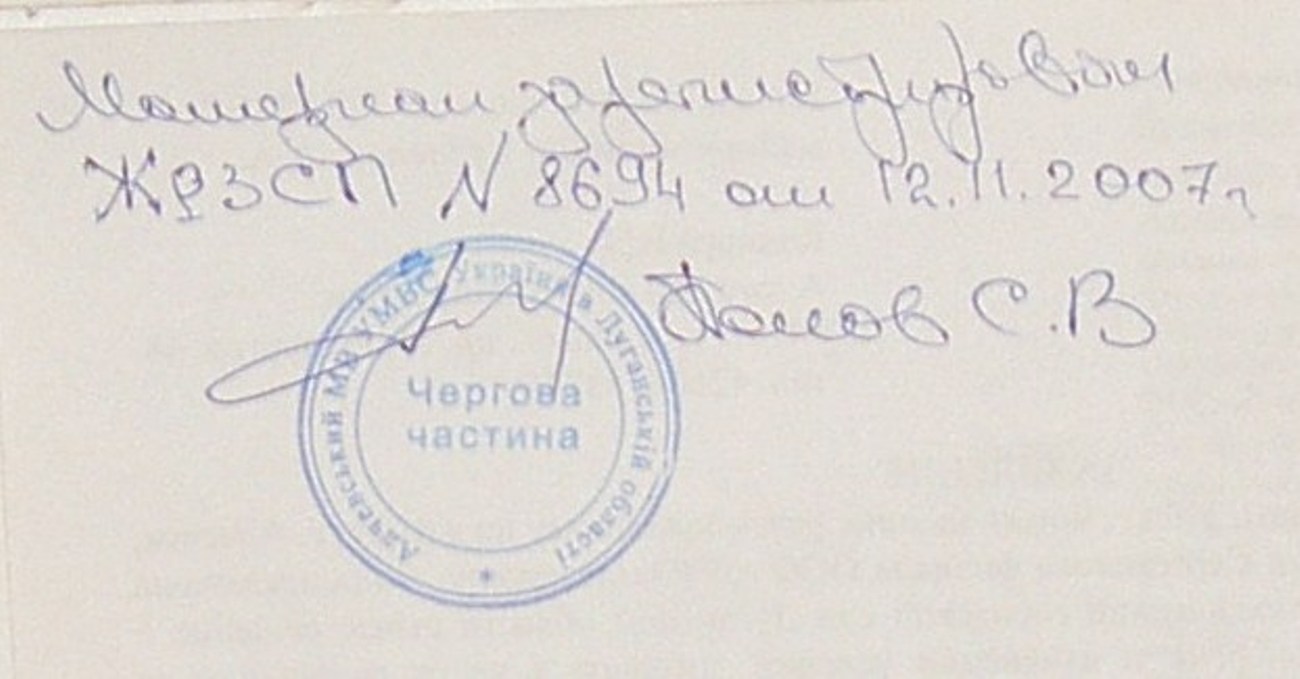 Материал зарегистрирован
ЖРЗСП N 8694 от 12.11.2007г
С.В
Алчевський МВ УМВС України в Луганській області
Чергова
частина